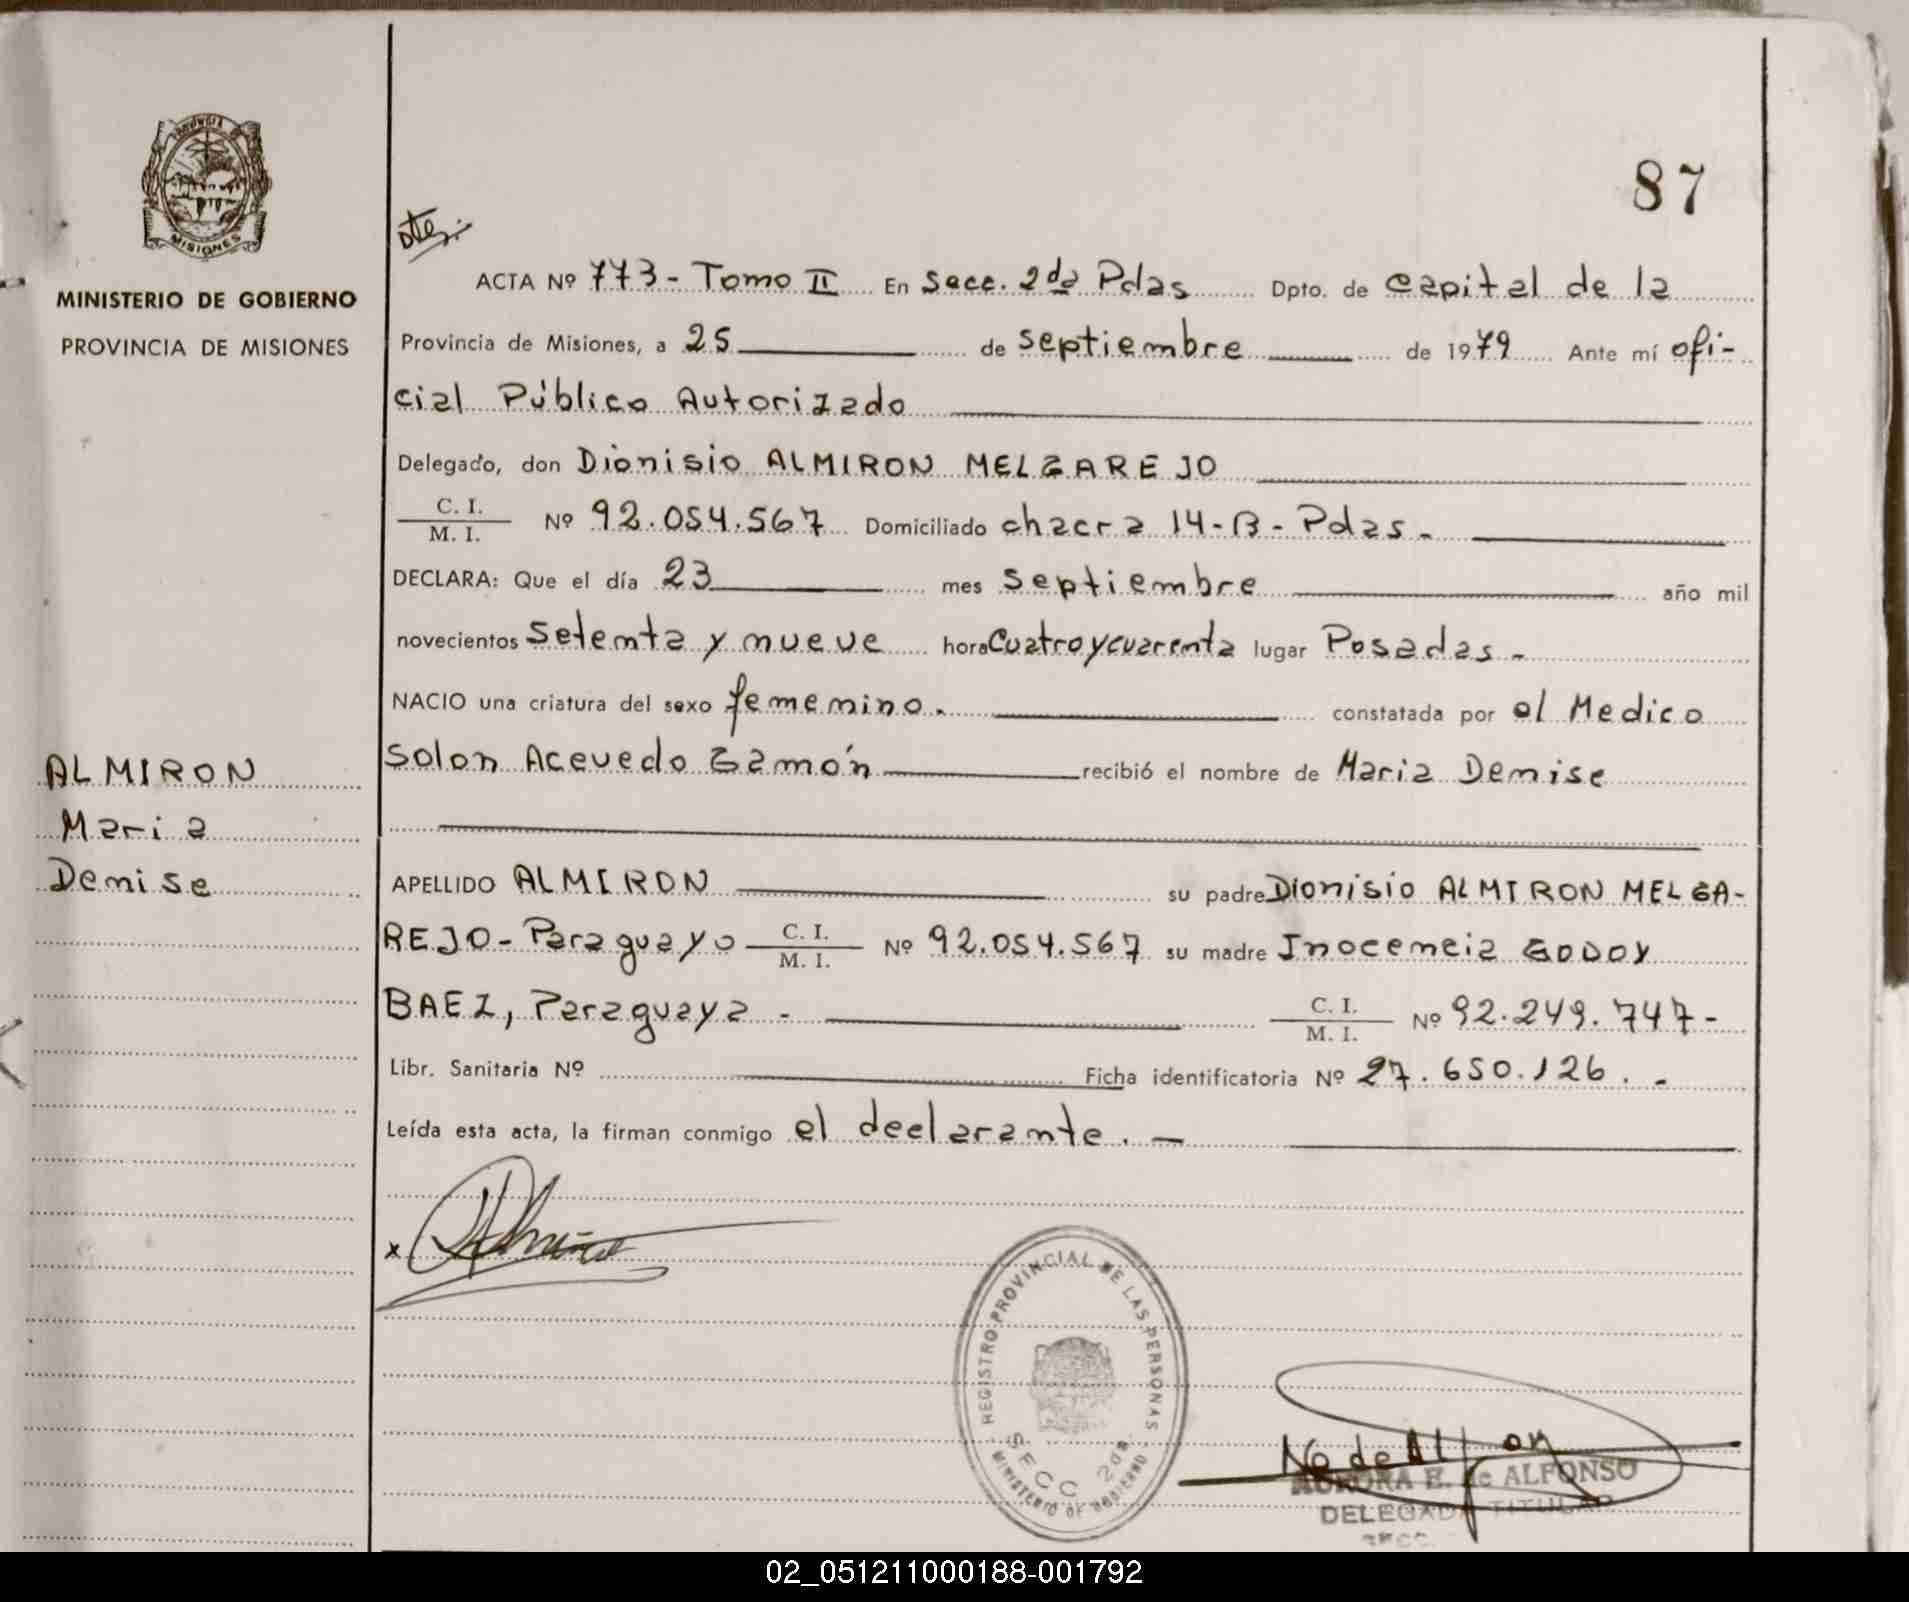 PROVINCIA DE
MISIONES
MINISTERIO DE GOBIERNO
PROVINCIA DE MISIONES
87
ACTA Nº 773 - Tomo II En Secc. 2da Pdas Dpto. de Capital de la
Provincia de Misiones, a 25 de septiembre de 1979 Ante mí ofi-
cial Público Autorizado
Delegado, don Dionisio ALMIRON MELGAREJO
C. I.
M. I. Nº 92.054.567 Domiciliado chacra 14-B- Pdas.-
DECLARA: Que el día 23 mes septiembre año mil
novecientos setenta y nueve hora Cuatro y cuarenta lugar Posadas-
NACIO una criatura del sexo femenino. constatada por el Medico
Solon Acevedo Gamón recibió el nombre de Maria Denise
ALMIRON
Maria
Denise
APELLIDO ALMIRON su padre Dionisio ALMIRON MELGA-
REJO- Paraguayo C. I. M. I. Nº 92.054.567 su madre Inocencia GODOY
BAEZ, Paraguaya - C. I. M. I. Nº 92.249.747-
Libr. Sanitaria Nº Ficha identificatoria Nº 27.650.126.-
Leída esta acta, la firman conmigo el declarante.-
x
REGISTRO PROVINCIAL DE LAS PERSONAS
SECC 2da.
MINISTERIO DE GOBIERNO
AURORA E. de ALFONSO
DELEGADA TITULAR
SECC.
02_051211000188-001792